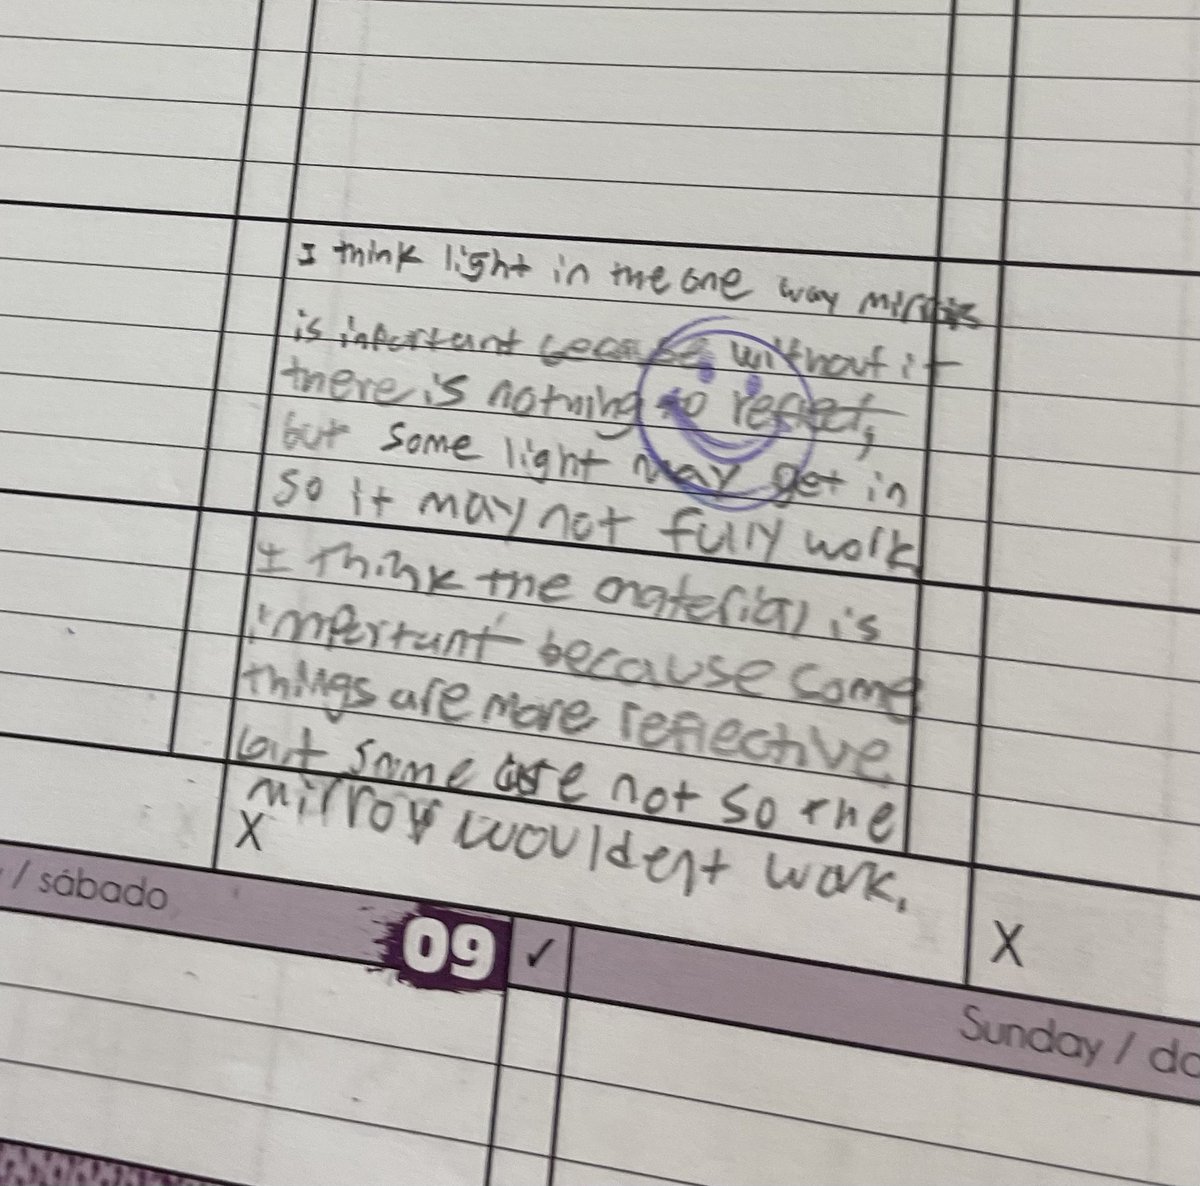 I think light in the one way mirrors
is inportant because without it
there is nothing to reflect,
but some light may get in
so it may not fully work
I think the material is
important because some
things are more reflective
but some are not so the
mirror wouldent work.
X
X
/ sábado
09 ✓
Sunday / do